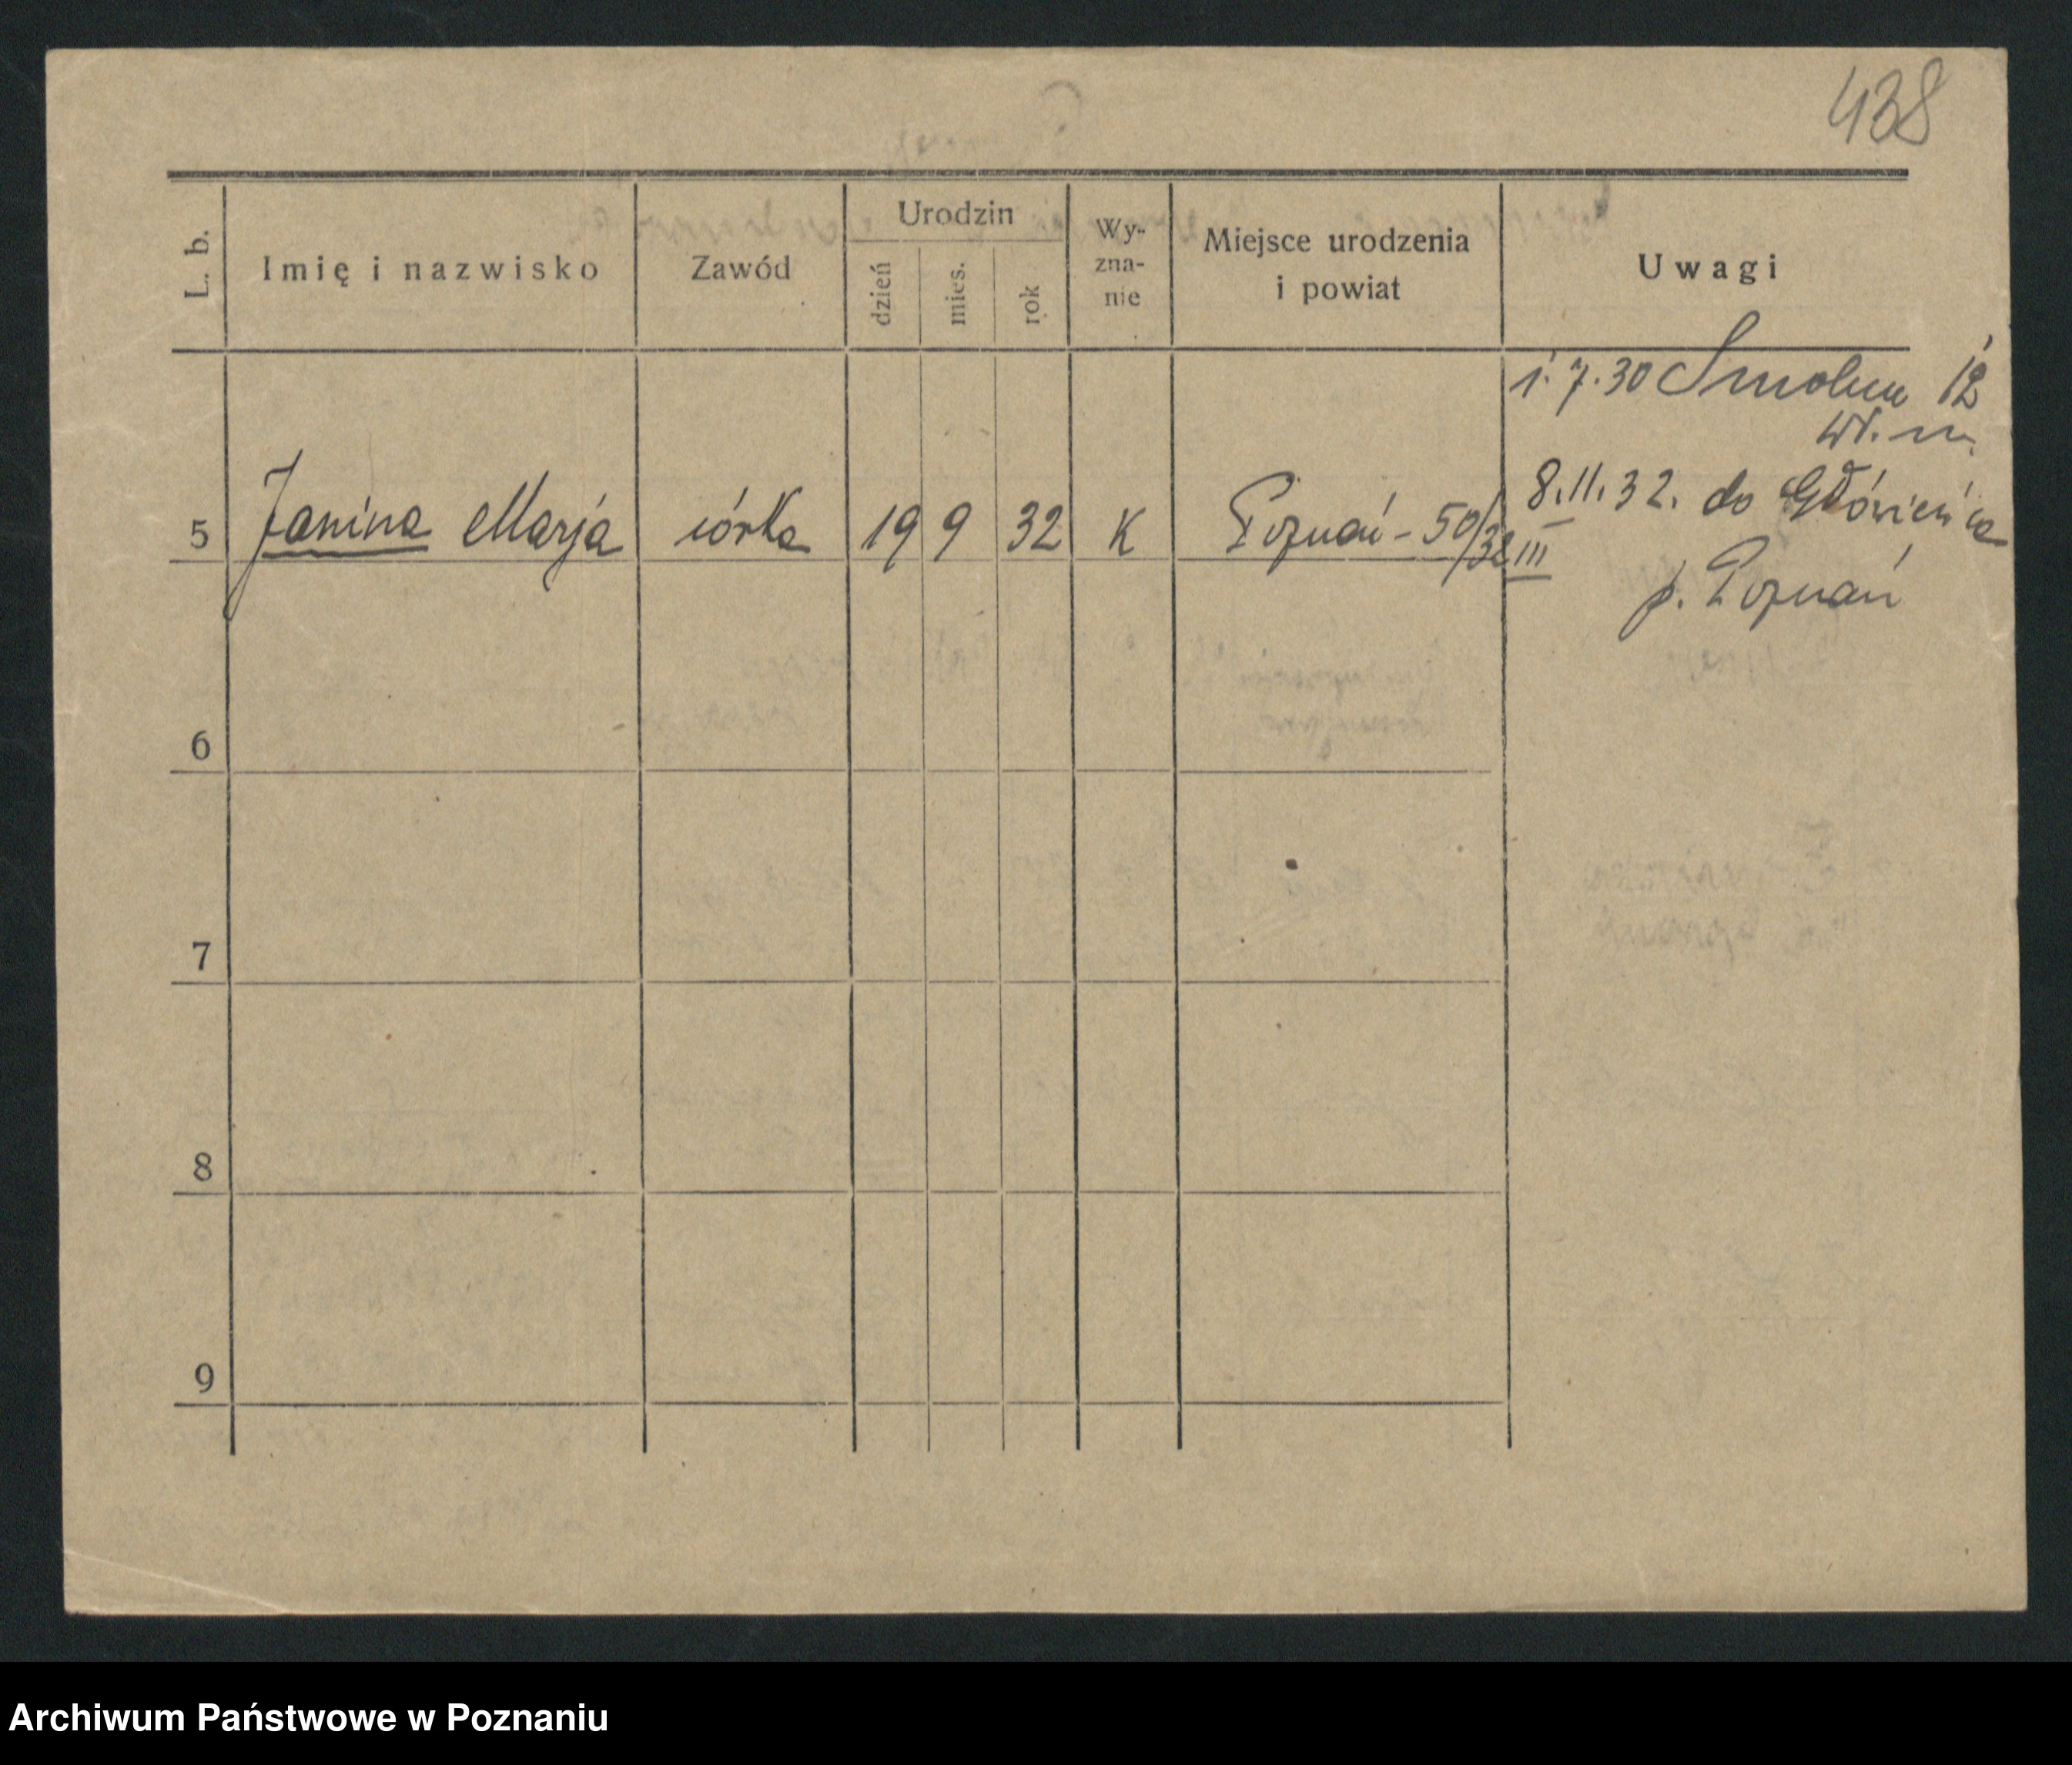 438
L. b.
Imię i nazwisko
Zawód
Urodzin
dzień
mies.
rok
Wy-
zna-
nie
Miejsce urodzenia
i powiat
Uwagi
1.7.30 12
8.11.32. do
5 Janina Marja córka 19 9 32 K Poznań - 50/32 III
p. Poznań
6
7
8
9
Archiwum Państwowe w Poznaniu